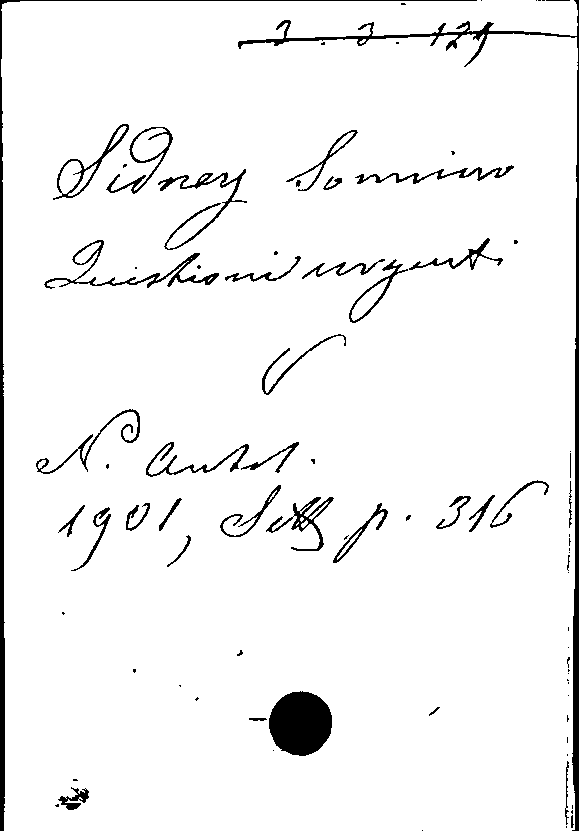 3. 3. 129
Sidney Sonnino
Quistioni urgenti
V
N. Antol.
1901, Sett p. 316